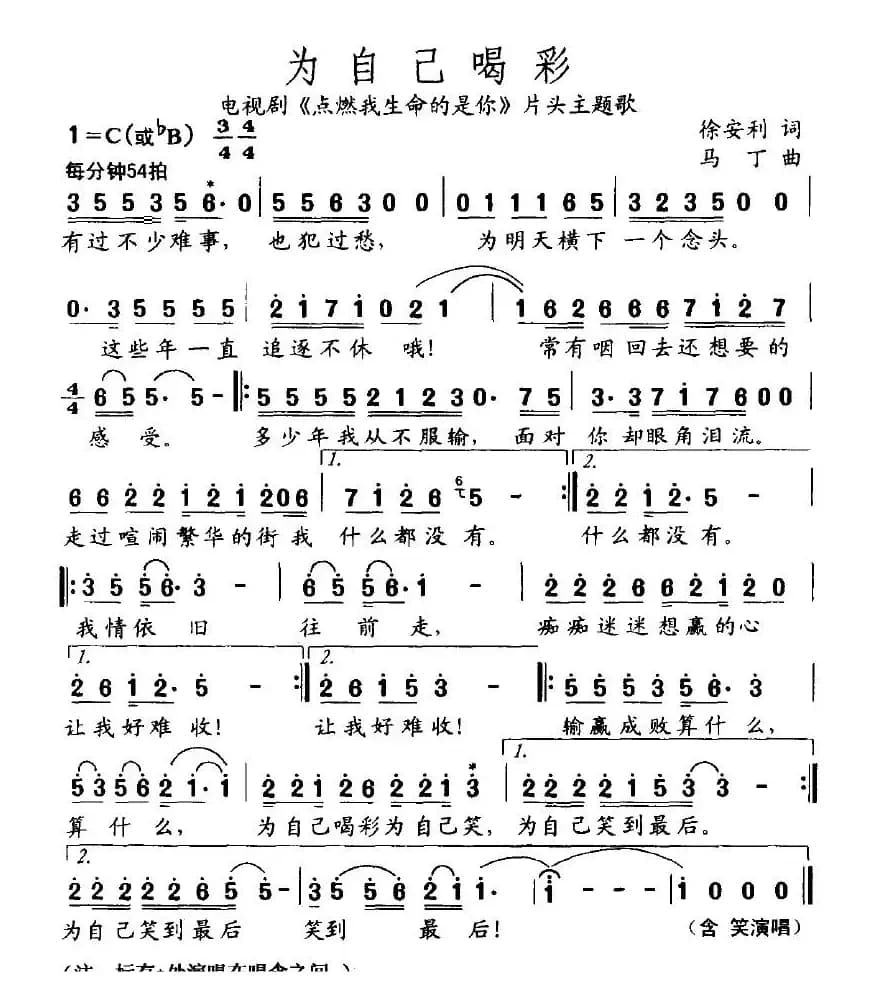 为自己喝彩
电视剧《点燃我生命的是你》片头主题歌
1=C(或♭B) 3/4 4/4
徐安利 词
每分钟54拍
马丁 曲
3 5 5 3 5 6· 0 | 5 5 6 3 0 0 | 0 1 1 1 6 5 | 3 2 3 5 0 0 |
有过不少难事, 也犯过愁, 为明天横下一个念头。
0· 3 5 5 5 5 | 2 1 7 1 0 2 1 | 1 6 2 6 6 6 7 1 2 7 |
这些年一直 追逐不休 哦! 常有咽回去还想要的
4/4 6 5 5· 5 - ‖: 5 5 5 5 2 1 2 3 0· 7 5 | 3· 3 7 1 7 6 0 0 |
感受。 多少年我从不服输, 面对 你却眼角泪流。
1. 2.
6 6 2 2 1 2 1 2 0 6 | 7 1 2 6 6 7 5 - :‖ 2 2 1 2· 5 - |
走过喧闹繁华的街我 什么都没有。 什么都没有。
‖: 3 5 5 6· 3 - | 6 5 5 6· 1 - | 2 2 2 6 6 2 1 2 0 |
我情依旧 往前走, 痴痴迷迷想赢的心
1. 2.
2 6 1 2· 5 - :‖ 2 6 1 5 3 - ‖: 5 5 5 3 5 6· 3 |
让我好难收! 让我好难收! 输赢成败算什么,
1.
5 3 5 6 2 1· 1 | 2 2 1 2 6 2 2 1 3 | 2 2 2 2 1 5 3 3 - :‖
算什么, 为自己喝彩为自己笑, 为自己笑到最后。
2.
2 2 2 2 2 6 5 5 - | 3 5 5 6 2 1 1· | 1 - - - | 1 0 0 0 ‖
为自己笑到最后 笑到 最后! (含笑演唱)